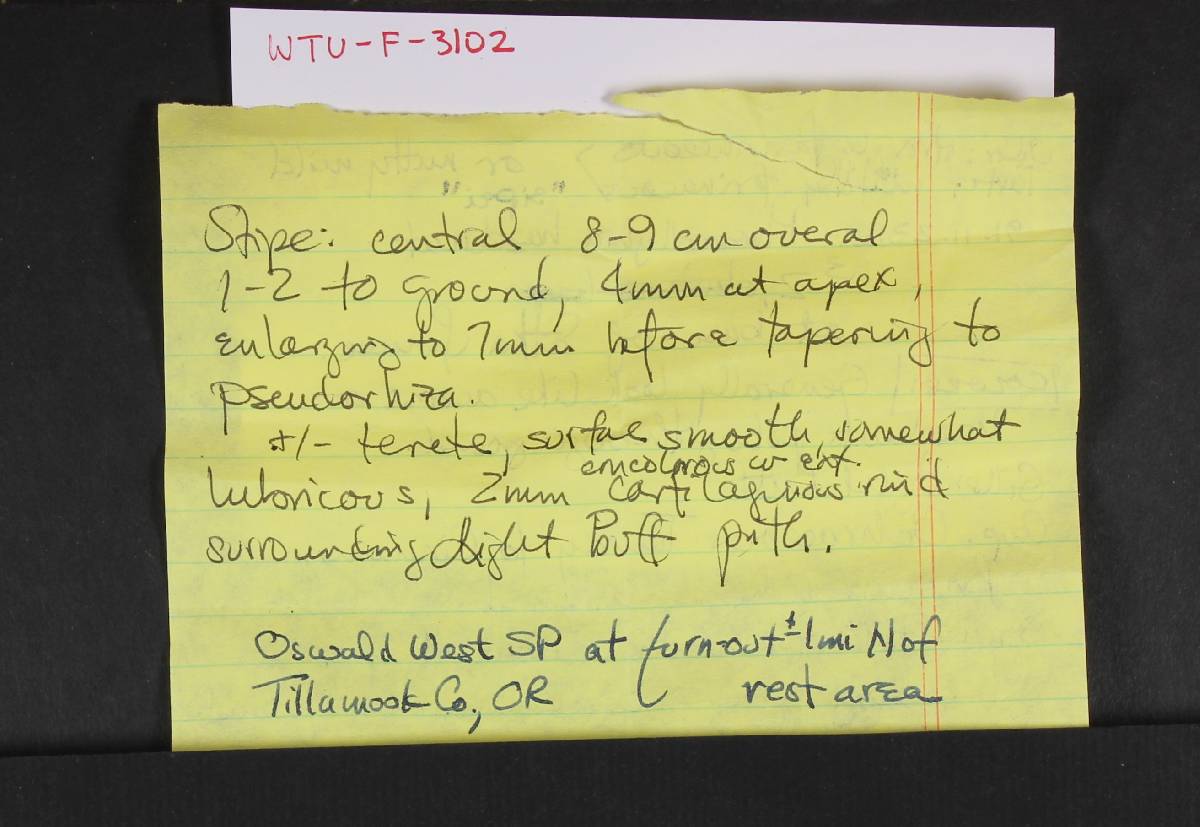 WTU-F-3102
Stipe: central 8-9 cm overal
1-2 to ground, 4mm at apex,
enlarging to 7mm before tapering to
pseudorhiza.
+/- terete, surface smooth, somewhat
concolorous w ext.
lubricous, 2mm cartilaginous rind
surrounding light buff pith.
Oswald West SP at turn-out ± 1mi N of
Tillamook Co, OR rest area